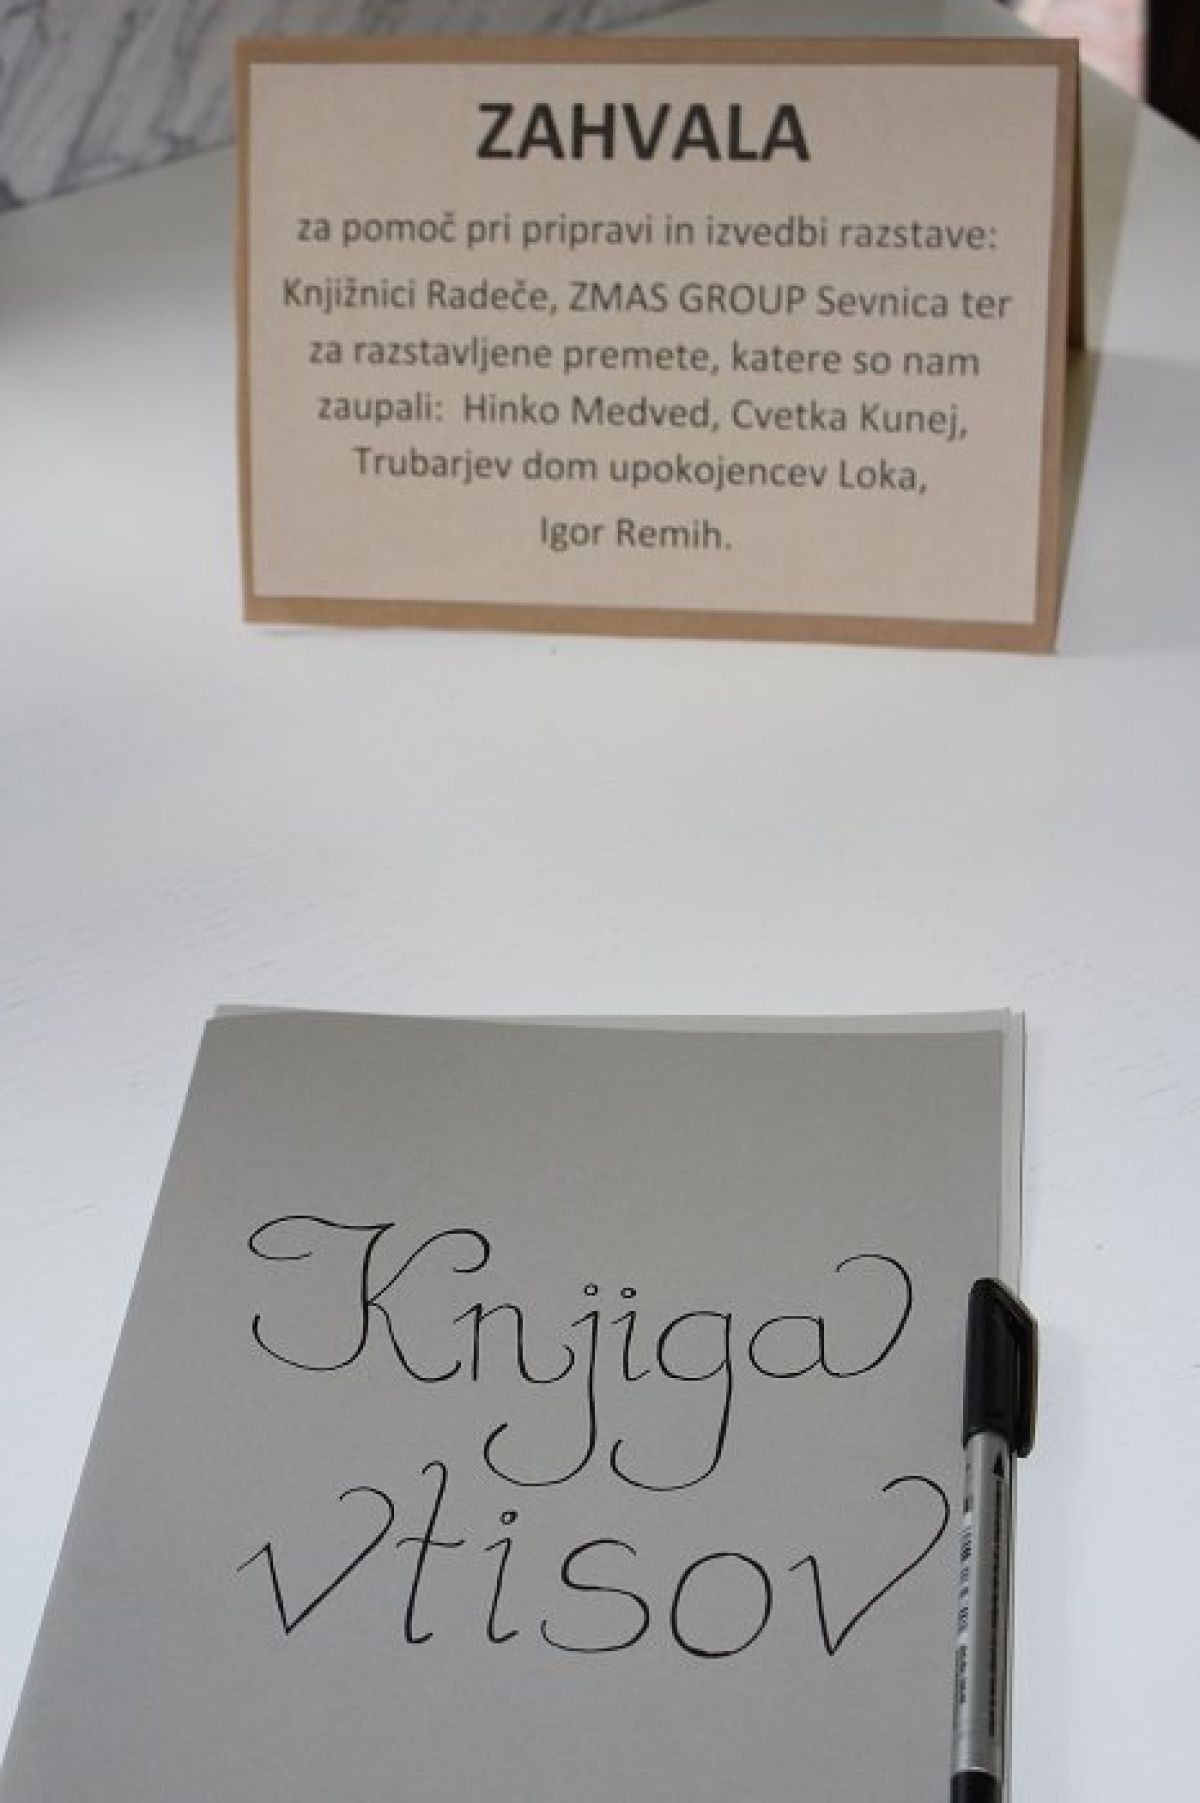 ZAHVALA
za pomoč pri pripravi in izvedbi razstave:
Knjižnici Radeče, ZMAS GROUP Sevnica ter
za razstavljene premete, katere so nam
zaupali: Hinko Medved, Cvetka Kunej,
Trubarjev dom upokojencev Loka,
Igor Remih.
Knjiga
vtisov